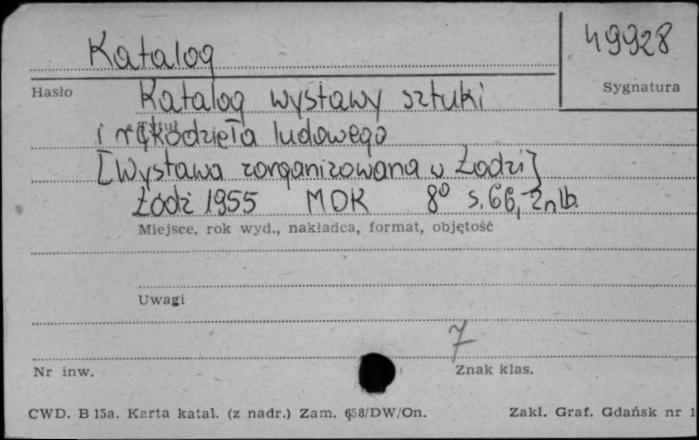 Katalog
49928
Hasło
Sygnatura
Katalog wystawy sztuki
i rękodzieła ludowego
[Wystawa zorganizowana w Łodzi]
Łódź 1955 MDK 8° s. 66, 2 nlb.
Miejsce, rok wyd., nakładca, format, objętość
Uwagi
7
Nr inw.
Znak klas.
CWD. B 15a. Karta katal. (z nadr.) Zam. 658/DW/On. Zakł. Graf. Gdańsk nr 1